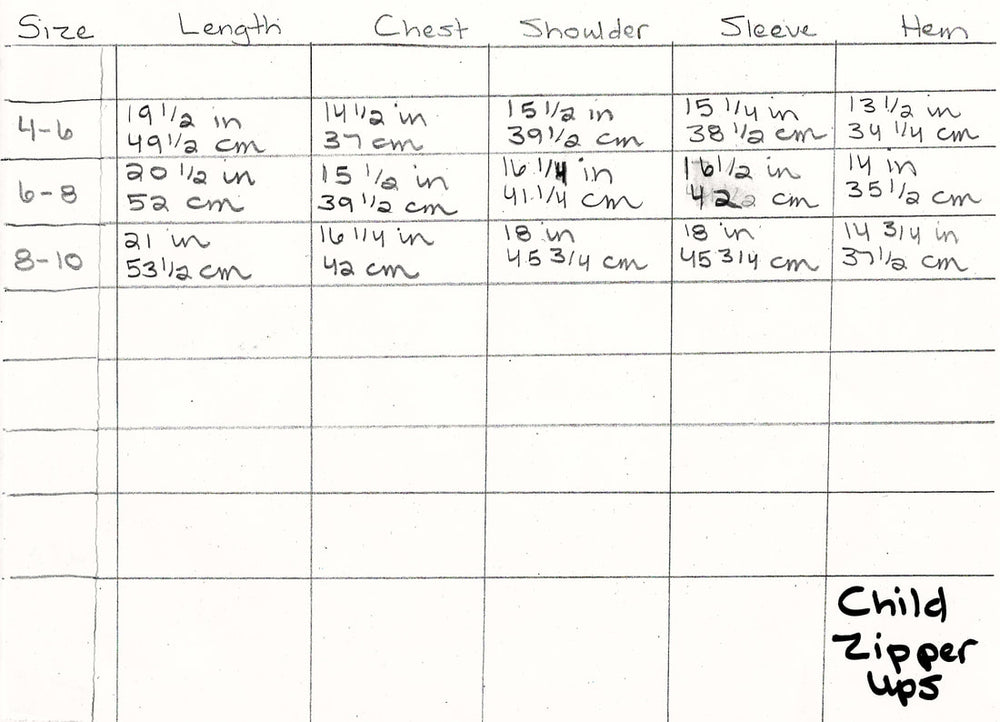 Size Length Chest Shoulder Sleeve Hem
4-6 19 1/2 in 14 1/2 in 15 1/2 in 15 1/4 in 13 1/2 in
49 1/2 cm 37 cm 39 1/2 cm 38 1/2 cm 34 1/4 cm
6-8 20 1/2 in 15 1/2 in 16 1/4 in 16 1/2 in 14 in
52 cm 39 1/2 cm 41 1/4 cm 42 cm 35 1/2 cm
8-10 21 in 16 1/4 in 18 in 18 in 14 3/4 in
53 1/2 cm 42 cm 45 3/4 cm 45 3/4 cm 37 1/2 cm
Child
Zipper
Ups